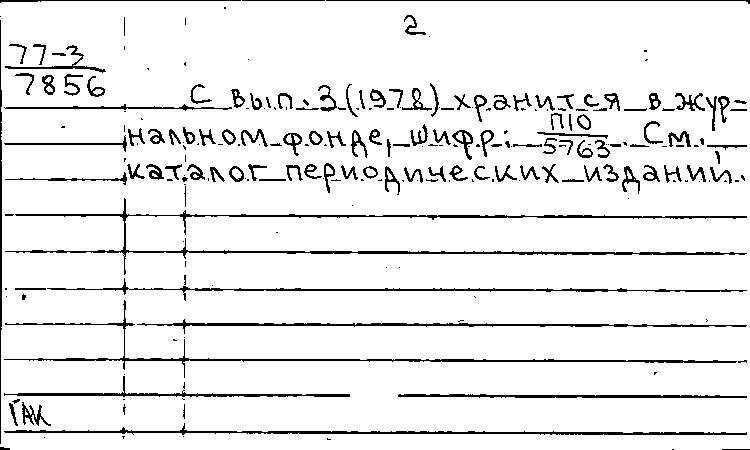 2
77-3
7856
С вып. 3 (1978) хранится в жур-
нальном фонде, шифр: П10
5763. См.
каталог периодических изданий.
ГАК